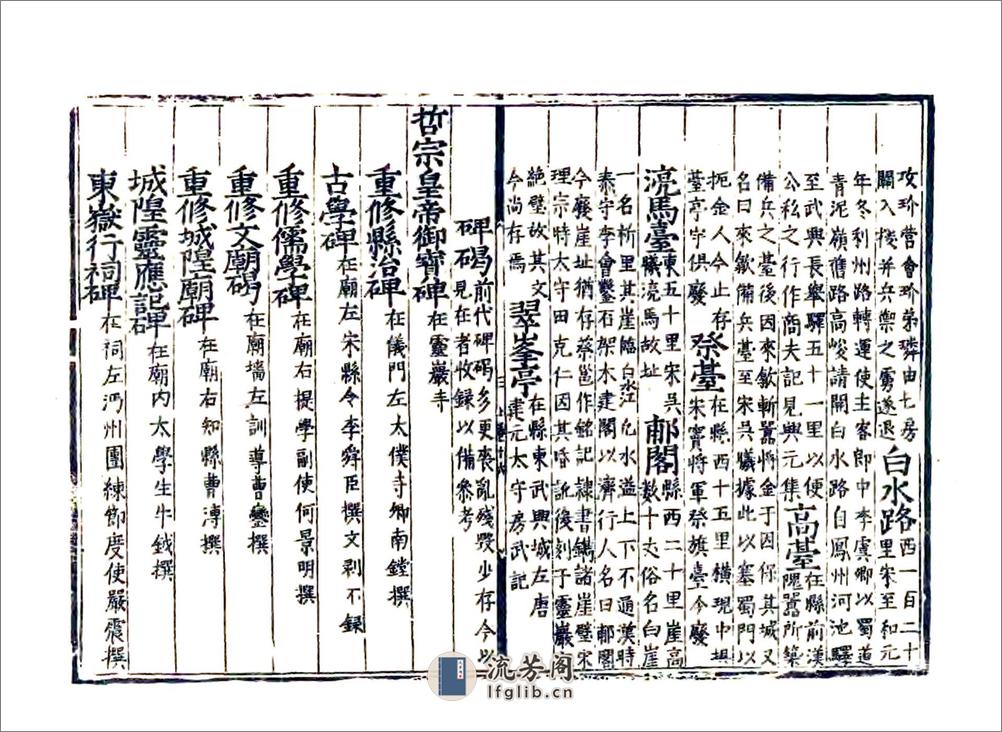 攻玠營會玠弟璘由七房
關入援并兵禦之虜遂退
白水路西一百二十
里宋至和元
年冬利州路轉運使主客郎中李虞卿以蜀道
青泥嶺舊路高峻請開白水路自鳳州河池驛
至武興長舉驛五十一里以便
公私之行作商夫記見興元集
高臺在縣前漢
隗囂所築
備兵之臺後因來歙斬囂將金于因保其城又
名曰來歙備兵臺至宋吳曦據此以塞蜀門以
扼金人今止存
臺亭守俱廢
祭臺在縣西十五里橫現中坦
宋竇將軍祭旗臺今廢
馬臺東五十里宋吳
曦馬故址
郙閣縣西二十里崖高
數十丈俗名白崖
一名析里其崖臨白水江凢水溢上下不通漢時
泰守李會鑿石架木建閣以濟行人名曰郙閣
今廢崖址猶存蔡邕作銘記隸書鐫諸崖壁宋
理宗時太守田克仁因其昏訛後刻于靈巖
絶壁故其文
今尚存焉
翠峯亭在縣東武興城左唐
建元太守房武記
碑碣前代碑碣多更喪亂殘毀少存今以
見在者收錄以備參考
哲宗皇帝御寶碑在靈巖寺
重修縣治碑在儀門左太僕寺卿南鏜撰
古學碑在廟左宋縣令李舜臣撰文剥不錄
重修儒學碑在廟右提學副使何景明撰
重修文廟碣在廟墻左訓導曹鑾撰
重修城隍廟碑在廟右知縣曹溥撰
城隍靈應記碑在廟内太學生牛鉞撰
東嶽行祠碑在祠左沔州團練節度使嚴震撰
流芳阁
lfglib.cn